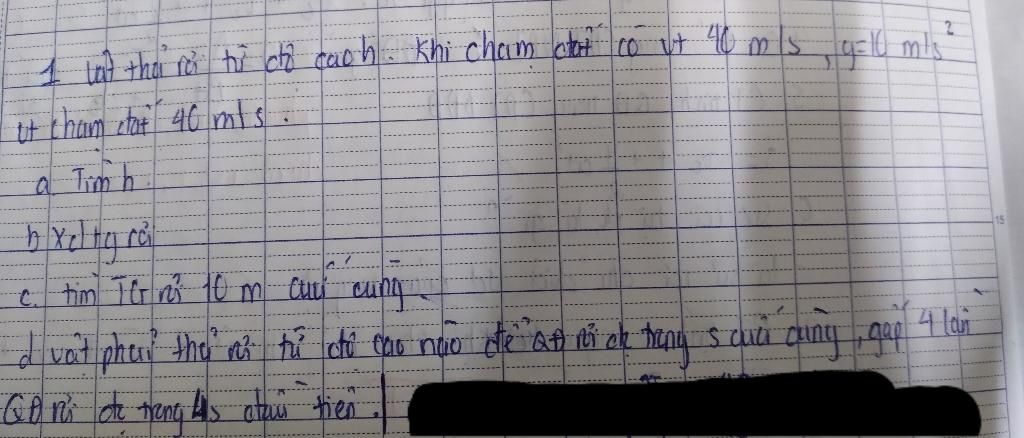 1 vật thả rơi từ độ cao h. Khi chạm đất có vt 40 m/s, g=10 m/s²
vt chạm đất 40 m/s.
a Tìm h.
b Xđ tg rơi
c. tìm TG rơi 10 m cuối cùng.
d vật phải thả rơi từ độ cao nào để QĐ rơi đc trong s cuối cùng, gấp 4 lần
QĐ rơi đc trong 1s đầu tiên.